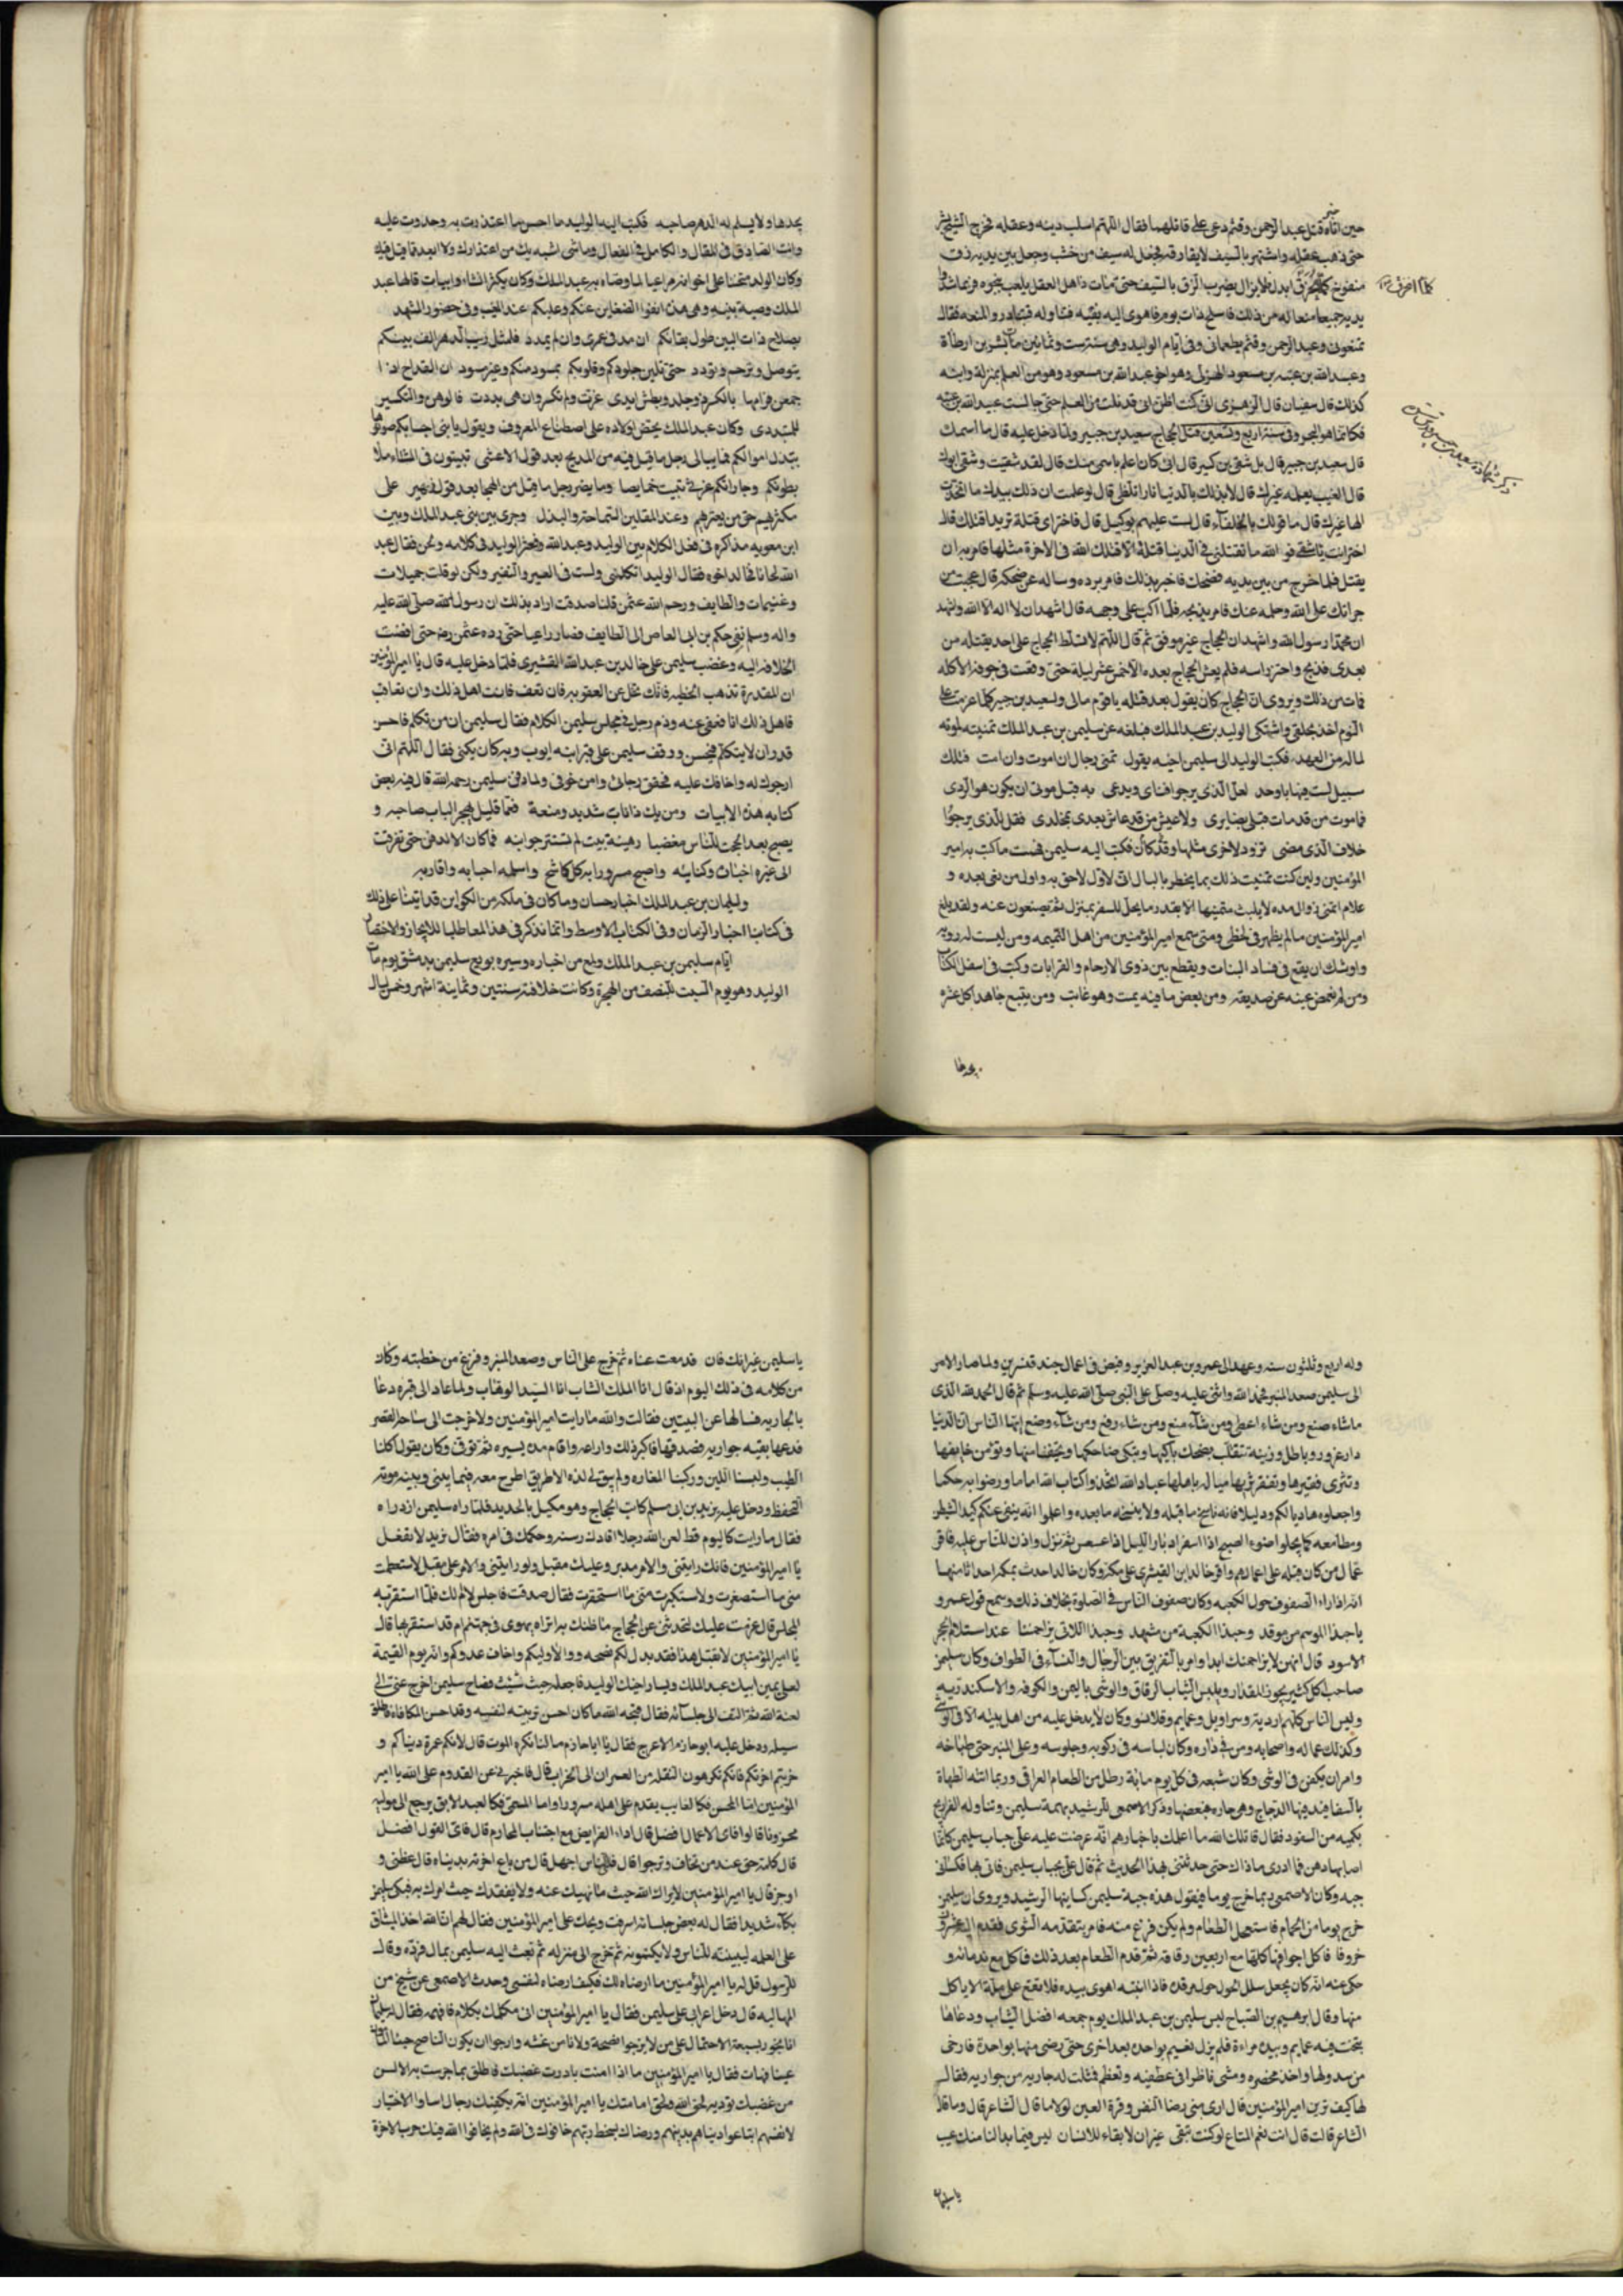 حين اتاه خبر قتل عبد الرحمن وقثم دعى على قاتلهما فقال اللهم اسلب دينه وعقله فخرج الشيخ
حتى ذهب عقله واشتهر بالسيف لايفارقه فجعل له سيف من خشب وجعل بين يديه زق
منفوخ كلما تخرق ابدل فلا يزال يضرب الزق بالسيف حتى مات ذاهل العقل يلعب
يديه جميعا منعا له من ذلك فاسلح ذات يوم فاهوى اليه بفيه فتناوله فبادروا لمنعه فقال
تمنعونى وعبد الرحمن وقثم يطعمانى وفى ايام الوليد وهى سنة ست وثمانين مات بشر بن ارطاة
وعبد الله بن عتبه بن مسعود الهذلى وهو اخو عبد الله بن مسعود وهو من العلم بمنزلة وابنه
كذلك قال سفيان قال الزهرى انى كنت اظن انى قد نلت من العلم حتى جالست عبيد الله بن عتبه
فكانما هو البحر وفى سنة اربع وتسعين قتل الحجاج سعيد بن جبير ولما دخل عليه قال ما اسمك
قال سعيد بن جبير قال بل شقى بن كسير قال ابى كان اعلم باسمى منك قال لقد شقيت وشقى ابوك
قال الغيب يعلمه غيرك قال لابدلنك بالدنيا نارا تلظى قال لو علمت ان ذلك بيدك ما اتخذت
الها غيرك قال ما قولك بالخلفاء قال لست عليهم بوكيل قال فاختر اى قتلة تريد اقتلك قال
اختر انت ياشقى فو الله ما تقتلنى فى الدنيا قتلة الا قتلك الله فى الاخرة مثلها فامر به ان
يقتل فلما اخرج من بين يديه فضحك فاخبر بذلك فامر برده وساله عن ضحكه قال عجبت من
جرأتك على الله وحلمه عنك فامر بذبحه فلما اكب على وجهه قال اشهد ان لا اله الا الله واشهد
ان محمدا رسول الله واشهد ان الحجاج غير موفق ثم قال اللهم لا تسلط الحجاج على احد يقتله من
بعدى فذبح واحتز راسه فلم يعش الحجاج بعده الا خمس عشر ليلة حتى وقعت فى جوفه الاكله
فمات من ذلك ويروى ان الحجاج كان يقول بعد قتله يا قوم مالى ولسعيد بن جبير كلما عزمت على
النوم اخذ بحلقى واشتكى الوليد بن عبد الملك فبلغه عن سليمن بن عبد الملك تمنيه لموته
لما له من العهد فكتب الوليد الى سليمن اخيه يقول تمنى رجال ان اموت وان امت فتلك
سبيل لست فيها باوحد لعل الذى يرجو افناى ويدعى به قبل موتى ان يكون هو الردى
فما موت من قد مات قبلى بضايرى ولا عيش من قد عاش بعدى بمخلدى فقل للذى يرجوا
خلاف الذى مضى تزود لاخرى مثلها وقد كان فكتب اليه سليمن فهمت ما كتب به امير
المؤمنين ولين كنت تمنيت ذلك بما يخطر بالبال انى لاول لاحق به واول من نعى بعده و
علام اتمنى زوال مده لا يلبث متمنيها الا بقدر ما يحل السفر بمنزل ثم يضعنون عنه ولقد بلغ
امير المؤمنين مالم يظهر فى لحظى ومتى سمع امير المؤمنين من اهل النميمه ومن ليست له رويه
واوشك ان يقع فى فساد النيات ويقطع بين ذوى الارحام والقرابات وكتب فى اسفل الكتاب
ومن لم يغمض عينه عن صديقه ومن بعض ما فيه يمت وهو غاتب ومن يتبع جاهدا كل عثره
يجدها ولا يسلم له الدهر صاحبه فكتب اليه الوليد ما احسن ما اعتذرت به وحذوت عليه
وانت الصادق فى المقال والكامل فى الفعال وما شى اشبه بك من اعتذارك ولا ابعد مما قيل فيك
وكان الوليد متحننا على اخوانه مراعيا لما وصاه به عبد الملك وكان يكثر انشاد ابيات قالها عبد
الملك وصية بنيه وهى هذه انفوا الضغاين عنكم وعليكم عند المغيب وفى حضور المشهد
بصلاح ذات البين طول بقائكم ان مد فى عمرى وان لم يمدد فلمثل ريب الدهر الف بينكم
بتوصل وترحم وتودد حتى تلين جلودكم وقلوبكم بمسود منكم وغير مسود ان القداح اذا
جمعن فرامها بالكسر ذو جلد وبطش ايدى عزت ولم تكسر وان هى بددت فالوهن والتكسير
للمتبددى وكان عبد الملك يحض اولاده على اصطناع المعروف ويقول يا بنى احسابكم صونوها
ببذل اموالكم فما يبالى رجل ما قيل فيه من المديح بعد قول الاعشى تبيتون فى المشتاء ملا
بطونكم وجاراتكم غرثى تبيت خمايصا وما يضر رجل ما قيل من الهجا بعد قول زهير على
مكثريهم حق من يعتريهم وعند المقلين السماحة والبذل وجرى بين بنى عبد الملك وبين
ابن معويه مذاكره فى فضل الكلام بين الوليد وعبد الله وفجر الوليد فى كلامه ونحن فقال عبد
وغنيمات والطايف ورحم الله عثمن قلنا صدقت اراد بذلك ان رسول الله صلى الله عليه
واله وسلم نفى حكم بن ابى العاص الى الطايف فصار راعيا حتى رده عثمن رضه حتى افضت
الخلافه اليه وغضب سليمن على خالد بن عبد الله القشيرى فلما دخل عليه قال يا امير المؤمنين
ان المقدرة تذهب الحفيظه فانك تجل عن العقوبه فان تعف فانت اهل لذلك وان تعاقب
فاهل ذلك انا فعفى عنه وذم رجل فى مجلس سليمن الكلام فقال سليمن ان من تكلم فاحسن
قدر ان لا يتكلم فيحسن ووقف سليمن على قبر ابنه ايوب وبه كان يكنى فقال اللهم انى
ارجوك له واخافك عليه فحقق رجائى وامن خوفى ولما دفن سليمن رحمه الله قال فيه بعض
كتابه هذه الابيات ومن يك ذا باب شديد ومنعة فعما قليل يهجر الباب صاحبه و
يصبح بعد الحجب للناس مغضبا رهينة بيت لم تستتر جوانبه فما كان الا الدفن حتى تفرقت
الى غيره اخباث وكتائبه واصبح مسرورا به كل كاشح واسلمه احبابه واقاربه
ولسليمان بن عبد الملك اخبار حسان وما كان فى ملكه من الكواين قد اتينا على ذلك
فى كتاب اخبار الزمان وفى الكتاب الاوسط وانما نذكر فى هذا لمعا طلبا للايجاز والاختصار
ايام سليمن بن عبد الملك ولمع من اخباره وسيره بويع سليمن بدمشق يوم مات
الوليد وهو يوم السبت للنصف من الهجرة وكانت خلافته سنتين وثمانية اشهر وخمس ليال
وله اربع وثلثون سنه وعهد الى عمرو بن عبد العزيز وقبض فى اعمال جند قنسرين ولما صار الامر
الى سليمن صعد المنبر فحمد الله واثنى عليه وصلى على النبى صلى الله عليه وسلم ثم قال الحمد لله الذى
ماشاء صنع ومن شاء اعطى ومن شاء منع ومن شاء رفع ومن شاء وضع ايها الناس ان الدنيا
دار غرور وباطل وزينة تتقلب بضحك باكيها وتبكى ضاحكها وتخيف امنها وتؤمن خايفها
وتثرى فقيرها وتفقر مثريها ميالة باهلها عباد الله اتخذوا كتاب الله اماما ورضوا به حكما
واجعلوه هاديا لكم ودليلا فانه ناسخ ما قبله ولا ينسخه ما بعده واعلموا انه ينفى عنكم كيد الشيطان
ومطامعه كما يجلوا ضوء الصبح اذا اسفر ادبار الليل اذا عسعس ثم نزل واذن للناس عليه فاقر
عمال من كان قبله على اعمالهم واقر خالد بن القيشرى على مكه وكان خالد احدث بمكه احداثا منها
انه ادار الصفوف حول الكعبه وكان صفوف الناس فى الصلوة بخلاف ذلك وسمع قول عمرو
ياحبذا الموسم من موقد وحبذا الكعبة من مشهد وحبذا اللاتى يزاحمننا عند استلام الحجر
الاسود قال انهن لا يزاحمنك ابدا وامر بالتفريق بين الرجال والنساء فى الطواف وكان سليمن
صاحب اكل كثير يجوز المقدار ويلبس الثياب الرقاق والوشى باليمن والكوفه والاسكندريه
ولبس الناس كلهم اردية وسراويل وعمايم وقلانس وكان لا يدخل عليه من اهل بيته الا فى الوشى
وكذلك عماله واصحابه ومن فى داره وكان لباسه فى ركوبه وجلوسه وعلى المنبر حتى طباخه
وامر ان يكفن فى الوشى وكان شبعه فى كل يوم مائة رطل من الطعام العراقى وربما اتته الطهاة
بالسفافيد فيها الدجاج وهى حاره وذكر الاصمعى للرشيد نهمة سليمن وتناوله الفراريج
بكميه من السفود فقال قاتلك الله ما اعلمك باخبارهم انه عرضت عليه على جباب سليمن
فما ادرى ماذاك حتى حدثتنى بهذا الحديث ثم قال على بجباب سليمن فاتى بها فكسانى
جبه وكان الاصمعى ربما خرج يوما فيقول هذه جبة سليمن كسانيها الرشيد ويروى ان سليمن
خرج يوما من الحمام فاستعجل الطعام ولم يكن فرغ منه فامر بتقدمه الشوى فقدم اليه عشرون
خروفا فاكل اجوافها كلها مع اربعين رقاقه ثم قدم الطعام بعد ذلك فاكل مع ندمائه و
حكى عنه انه كان يجعل سلال الحول حول مرقده فاذا انتبه اهوى بيده فلا يقع على سلة الا ياكل
منها وقال ابرهيم بن الصباح لبس سليمن بن عبد الملك يوم جمعه افضل الثياب ودعاها
بتخت فيه عمايم وبيده مراءة فلم يزل يغيم بواحده بعد اخرى حتى رضى منها بواحدة فارخى
من سدولها واخذ مخصره ومشى ناظرا فى عطفيه وتعظم فمثلت له جاريه من جواريه فقال
لها كيف ترين امير المؤمنين قال ارى منى رضا النفس وقرة العين لولا ما قال الشاعر قال وما قال
الشاعر قالت قال انت نعم المتاع لو كنت تبقى غير ان لا بقاء للانسان ليس فيما بدا لنا منك عيب
ياسليمن غير انك فان فدمعت عيناه ثم خرج على الناس وصعد المنبر وفرغ من خطبته وكان
من كلامه فى ذلك اليوم اذ قال انا الملك الشاب انا السيد الوهاب ولما عاد الى قبره دعا
بالجاريه فسالها عن البيتين فقالت والله ما رايت امير المؤمنين ولا خرجت الى ساحة القصر
فدعا بقيه جواريه فصدقتها فاكبر ذلك وراعه واقام مدة يسيره ثم توفى وكان يقول اكلنا
الطيب ولبسنا اللين وركبنا الفاره ولم يبق لى لذه الا طريق اطرح معه فيما بينى وبينه مونة
التحفظ ودخل عليه يزيد بن ابى مسلم كاتب الحجاج وهو مكبل بالحديد فلما راه سليمن ازدراه
فقال ما رايت كاليوم قط لعن الله رجلا اقادك رسنه وحكمك فى امره فقال يزيد لا تفعل
يا امير المؤمنين فانك رايتنى والامر مدبر وعليك مقبل ولو رايتنى والامر على مقبل لاستعظمت
منى ما استصغرت ولاستكبرت منى ما استحقرت فقال صدقت فاجلس لا ام لك فلما استقر به
المجلس قال عزمت عليك لتحدثنى عن الحجاج ما ظنك به اتراه يهوى فى جهنم ام قد استقر بها قال
يا امير المؤمنين لا تقل هذا فقد بذل لكم نصحه ووالا وليكم واخاف عدوكم وانه يوم القيمة
لعلى يمين ابيك عبد الملك ويسار اخيك الوليد فاجعله حيث شئت فصاح سليمن اخرج عنى الى
لعنة الله ثم التفت الى جلسائه فقال قبحه الله ما كان احسن تربيته لنفسه وقد احسن المكافاه فاطلق
سبيله ودخل عليه ابو حازم الاعرج فقال يا ابا حازم ما لنا نكره الموت قال لانكم عمرتم دنياكم و
خربتم اخرتكم فانكم تكرهون النقله من العمران الى الخراب قال فاخبرنى عن القدوم على الله يا امير
المؤمنين اما المحسن فكالغايب يقدم على اهله مسرورا واما المسئ فكالعبد الابق يرجع الى موليه
محزونا قالوا فاى الاعمال افضل قال اداء الفرايض مع اجتناب المحارم قال فاى القول افضل
قال كلمة حق عند من تخاف وترجوا قال فاى الناس اجهل قال من باع اخرته بدنياه قال عظنى و
اوجز قال يا امير المؤمنين لا يراك الله حيث ما نهيك عنه ولا يفقدك حيث امرك به فبكى سليمن
بكاء شديدا فقال له بعض جلسائه اسرفت ويحك على امير المؤمنين فقال لهم ان الله اخذ الميثاق
على العلماء ليبيننه للناس ولا يكتمونه ثم خرج الى منزله ثم بعث اليه سليمن بمال فرده وقال
للرسول قل له يا امير المؤمنين ما ارضاه لك فكيف ارضاه لنفسى وحدث الاصمعى عن شيخ من
المهالبه قال دخل اعرابى على سليمن فقال يا امير المؤمنين انى مكلمك بكلام فافهمه فقال له سليمان
انا نجود بسعة الاحتمال على من لا نرجوا نصحه ولا نامن غشه وارجوا ان يكون الناصح
فقال يا امير المؤمنين ما اذا امنت بادرت غضبك فاطلق بما خرست به الالسن
من غضبك تؤديه لحق الله وحق امامتك يا امير المؤمنين انه يكنفك رجال اساوا الاختيار
لانفسهم ابتاعوا دنياهم بدينهم ورضاك بسخط ربهم خافوك فى الله ولم يخافوا الله فيك حرب الاخرة